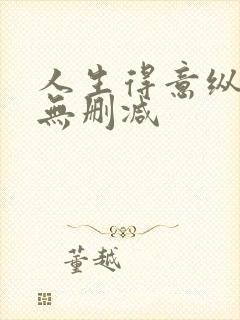 人生得意纵
無删减
董越